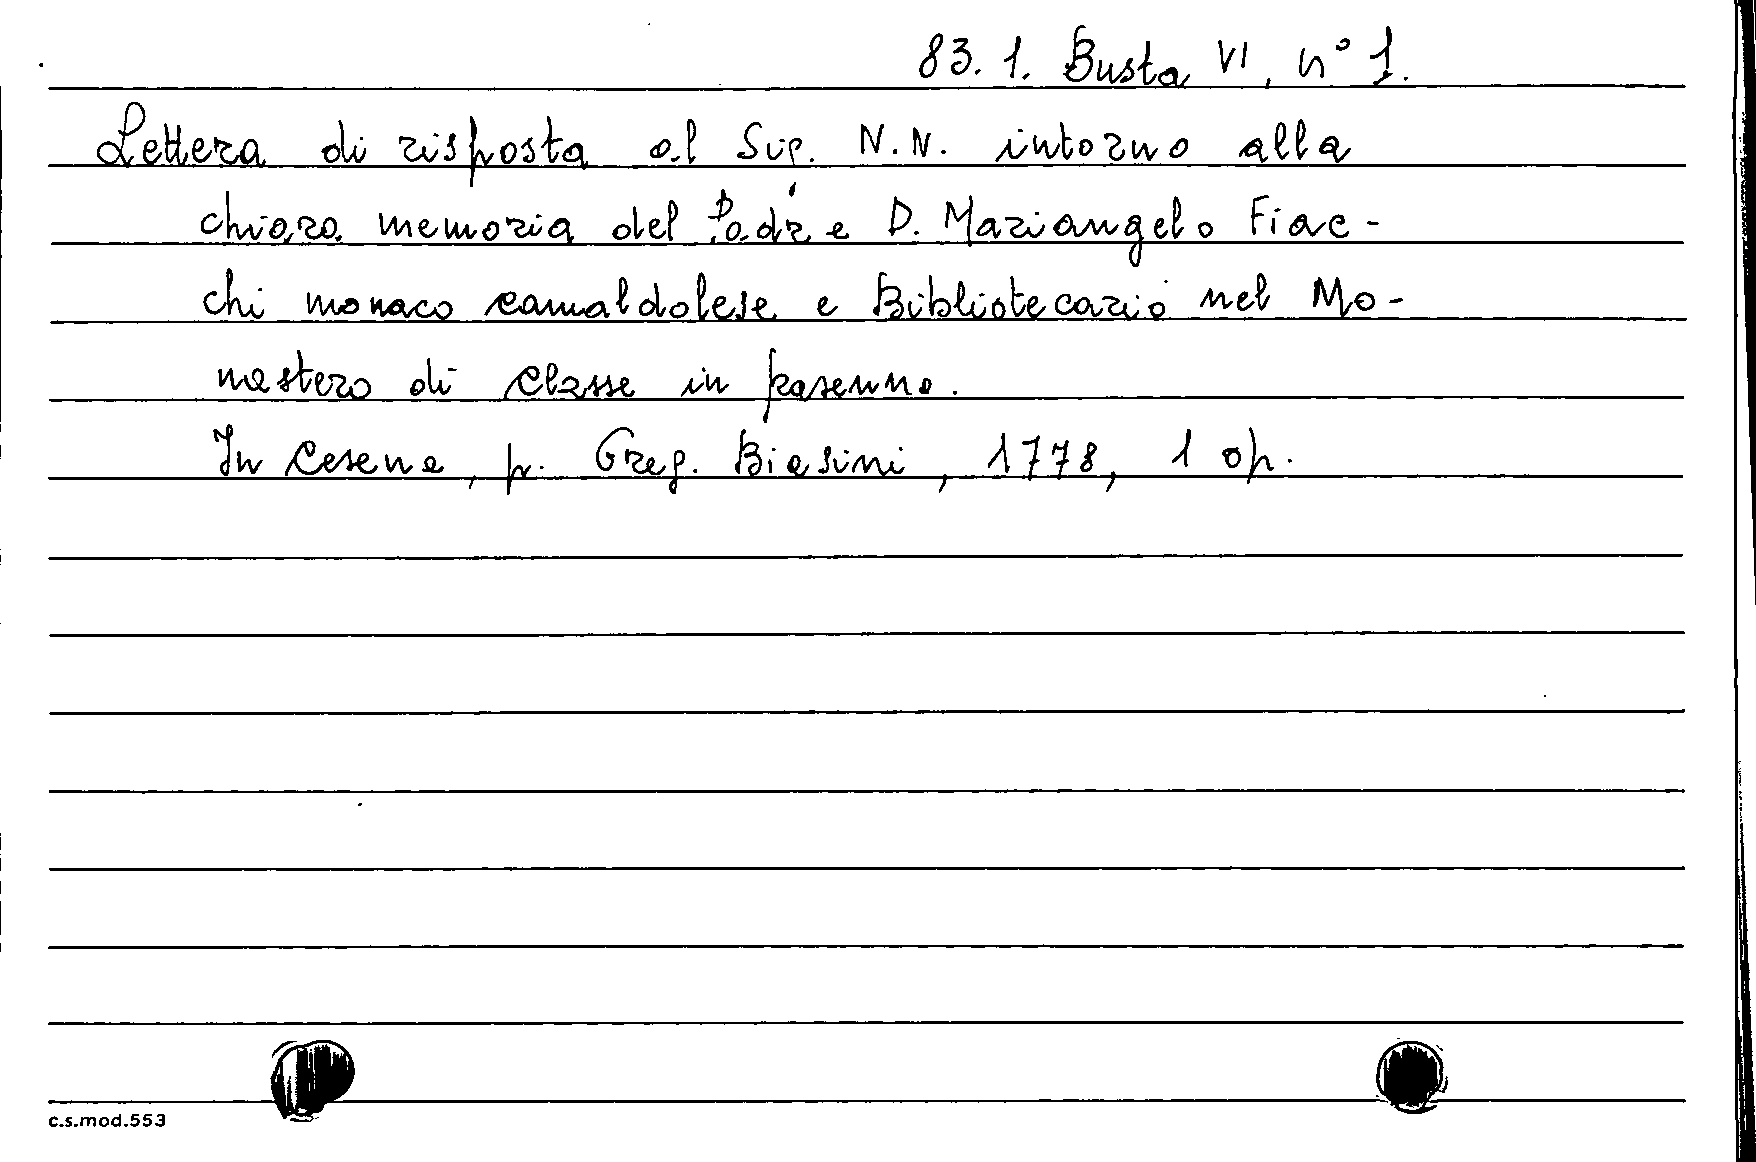 83. 1. Busta VI, n° 1.
Lettera di risposta al Sig. N. N. intorno alla
chiara memoria del Padre D. Mariangelo Fiac-
chi monaco camaldolese e Bibliotecario nel Mo-
nastero di Classe in Ravenna.
In Cesena, p. Greg. Biasini, 1778, 1 op.
c.s.mod.553